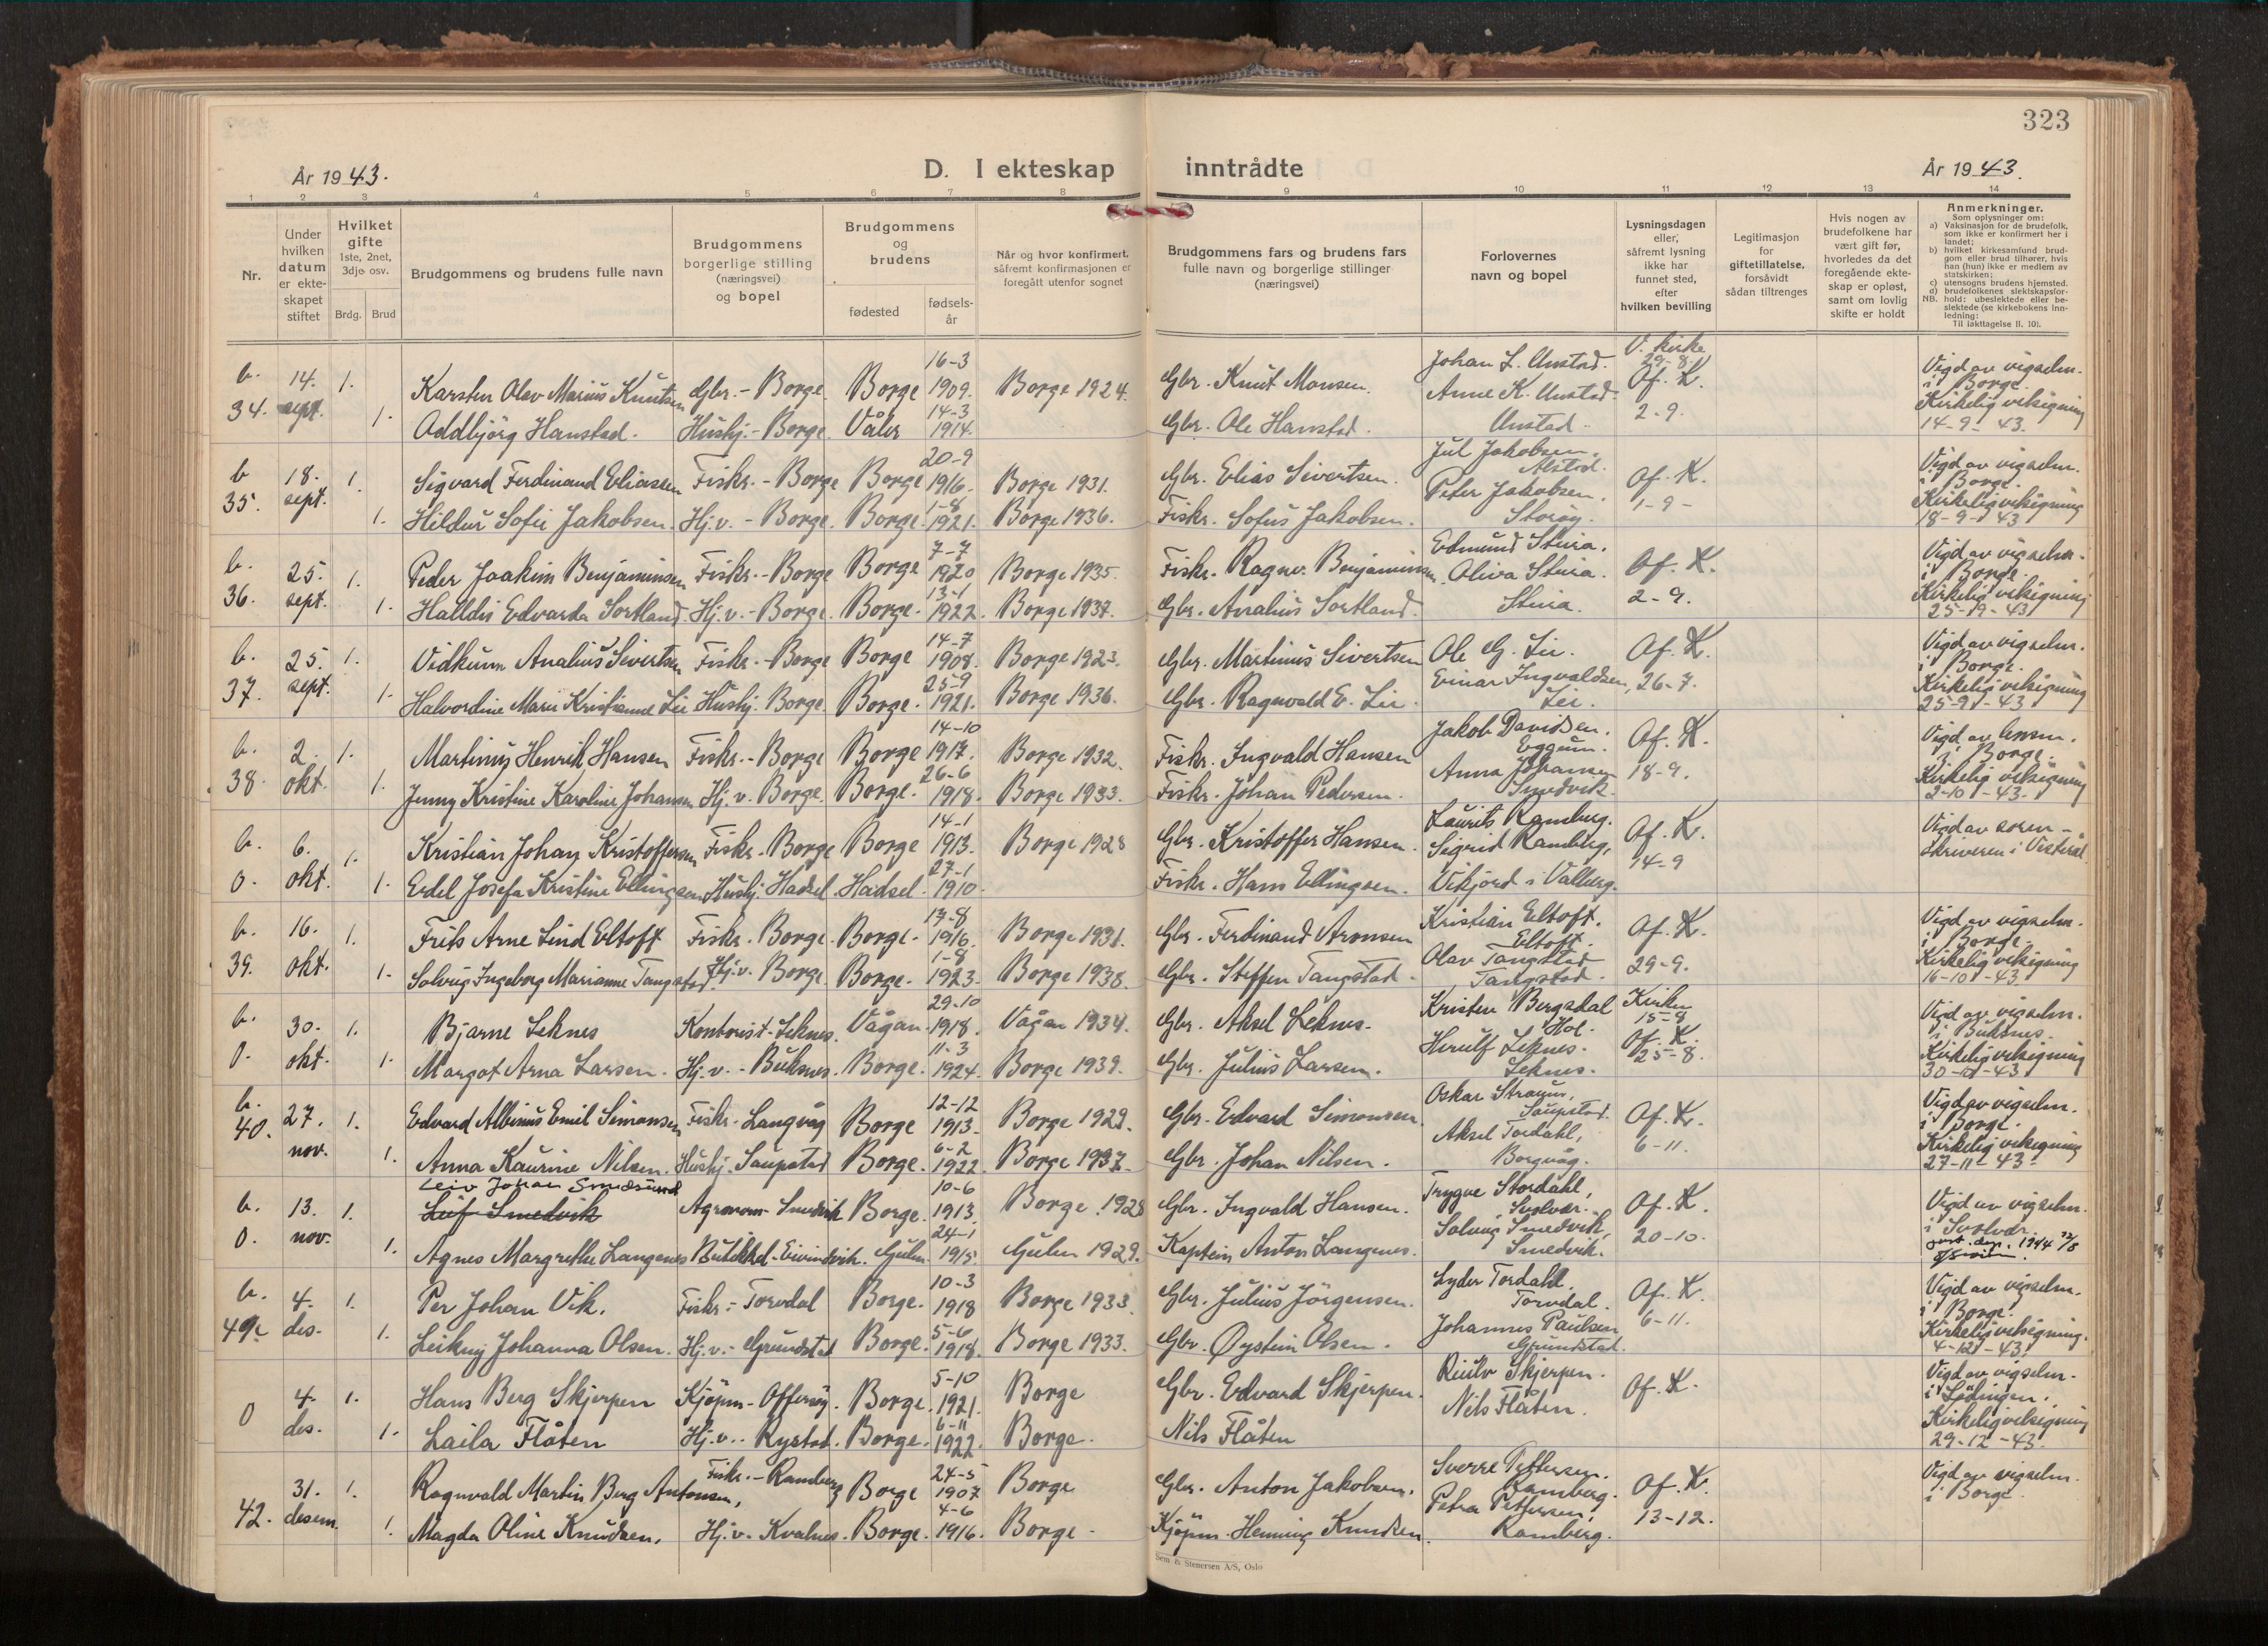 323
År 1943.
D. I ekteskap inntrådte
År 1943.
1 2 3 4 5 6 7 8 9 10 11 12 13 14
Nr.
Under hvilken datum er ekteskapet stiftet
Hvilket gifte 1ste, 2net, 3dje osv.
Brdg. Brud
Brudgommens og brudens fulle navn
Brudgommens borgerlige stilling (næringsvei) og bopel
Brudgommens og brudens
fødested
fødsels-år
Når og hvor konfirmert, såfremt konfirmasjonen er foregått utenfor sognet
Brudgommens fars og brudens fars fulle navn og borgerlige stillinger (næringsvei)
Forlovernes navn og bopel
Lysningsdagen eller, såfremt lysning ikke har funnet sted, efter hvilken bevilling
Legitimasjon for giftetillatelse, forsåvidt sådan tiltrenges
Hvis nogen av brudefolkene har vært gift før, hvorledes da det foregående ekteskap er opløst, samt om lovlig skifte er holdt
Anmerkninger.
Som oplysninger om:
a) Vaksinasjon for de brudefolk, som ikke er konfirmert her i landet;
b) hvilket kirkesamfund brudgom eller brud tilhører, hvis han (hun) ikke er medlem av statskirken;
c) utensogns brudens hjemsted.
d) brudefolkenes slektskapsforhold: ubeslektede eller beslektede (se kirkebokens innledning:
NB. Til iakttagelse II. 10).
b. 34. 14. sept. 1. Karsten Olav Marius Knutsen Gbr. - Borge. Borge 16-3 1909. Borge 1924. Gbr. Knut Monsen. Johan L. Unstad. Anne K. Unstad. Unstad. V. kirke 29-8. Of. K. 2-9. Vigd av vigselm. i Borge. Kirkelig velsigning 14-9-43.
1. Oddbjörg Hanstad. Hushj. - Borge. Våler 14-3 1914. Gbr. Ole Hanstad.
b 35. 18. sept. 1. Sigvard Ferdinand Eliassen Fiskr. - Borge Borge 20-9 1916. Borge 1931. Gbr. Elias Sivertsen. Jul Jakobsen, Alstad. Peter Jakobsen, Storøy. Of. K. 1-9- Vigd av vigselm. i Borge. Kirkelig velsigning 18-9-43
1. Hildur Sofie Jakobsen. Hj.v. - Borge. Borge. 1-8 1921. Borge 1936. Fiskr. Sofus Jakobsen.
b. 36. 25. sept. 1. Peder Joakim Benjaminsen Fiskr. - Borge Borge 7-7 1920 Borge 1935. Fiskr. Ragnv. Benjaminsen. Edmund Steira. Oliva Steira. Steira. Of. K. 2-9. Vigd av vigselm. i Borge. Kirkelig velsigning 25-9-43
1. Halldis Edvarda Sortland. Hj.v. - Borge. Borge. 13-1 1922. Borge 1937. Gbr. Analius Sortland.
b. 37. 25. sept. 1. Vidkunn Analius Sivertsen Fiskr. - Borge Borge 14-7 1908. Borge 1923. Gbr. Martinus Sivertsen Ole G. Lie. Einar Ingvaldsen, Lie. Of. K. 26-7. Vigd av vigselm. i Borge. Kirkelig velsigning 25-9-43
1. Halvordine Marie Kristianne Lie Hushj. Borge. Borge. 25-9 1921. Borge 1936. Gbr. Ragnvald E. Lie.
b. 38. 2. okt. 1. Martinus Henrik Hansen Fiskr. - Borge Borge 14-10 1917. Borge 1932. Fiskr. Ingvald Hansen Jakob Davidsen. Eggum. Anna Johansen Smedvik. Of. K. 18-9. Vigd av lensm. i Borge. Kirkelig velsigning 2-10-43.
1. Jenny Kristine Karoline Johansen Hj.v. Borge. Borge. 26-6 1918. Borge 1933. Fiskr. Johan Pedersen.
b. 0. 6. okt. 1. Kristian Johan Kristoffersen Fiskr. Borge Borge 14-1 1913. Borge 1928 Gbr. Kristoffer Hansen. Laurits Ramberg. Sigrid Ramberg, Vikjord i Valberg. Of. K. 14-9 Vigd av soren-skriveren i Vesterål.
1. Edel Josefa Kristine Ellingsen Hushj. Hadsel. Hadsel. 27-1 1910. Fiskr. Hans Ellingsen.
b. 39. 16. okt. 1. Frits Arne Lind Eltoft Fiskr. Borge. Borge. 17-8 1916. Borge 1931. Gbr. Ferdinand Aronsen Kristian Eltoft. Eltoft. Olav Tangstad Tangstad. Of. K. 29-9. Vigd av vigselm. i Borge. Kirkelig velsigning 16-10-43
1. Solveig Ingeborg Marianne Tangstad Hj.v. Borge Borge. 1-8 1923. Borge 1938. Gbr. Steffen Tangstad.
b. 0. 30. okt. 1. Bjarne Leknes Kontorist - Leknes. Vågan 29-10 1918. Vågan 1934. Gbr. Aksel Leknes. Kristen Bergsdal Hol. Herulf Leknes. Leknes. Kirken 15-8 Of. K. 25-8. Vigd av vigselm. i Buksnes. Kirkelig velsigning 30-10-43
1. Margot Arna Larsen. Hj.v. - Buksnes. Borge. 11-3 1924. Borge 1939. Gbr. Julius Larsen.
b. 40. 27. nov. 1. Edvard Albinus Emil Simonsen Fiskr. Langvåg Borge 12-12 1913. Borge 1929. Gbr. Edvard Simonsen. Oskar Straum, Saupstad. Aksel Tordahl, Borgvåg. Of. K. 6-11. Vigd av vigselm. i Borge. Kirkelig velsigning 27-11-43.
1. Anna Kaurine Nilsen. Hushj. Saupstad Borge. 6-2 1922. Borge 1937. Gbr. Johan Nilsen.
b. 0. 13. nov. 1. Leiv Johan Smedsund Leif Smedvik Agronom - Smedvik Borge. 10-6 1913. Borge. 1928 Gbr. Ingvald Hansen. Trygve Stordahl, Svolvær. Solveig Smedvik, Smedvik. Of. K. 20-10. Vigd av vigselm. i Svolvær.
1. Agnes Margrethe Langenes Butikkd. - Eivindvik. Gulen. 24-1 1915. Gulen 1929. Kaptein Anton Langenes.
b. 4. des. 1. Per Johan Vik. Fiskr. - Torvdal Borge. 10-3 1918 Borge 1933. Gbr. Julius Jörgensen. Lyder Tordahl. Torvdal. Johannes Paulsen Grundstad. Of. K. 6-11. Vigd av vigselm. i Borge. Kirkelig velsigning. 4-12-43.
1. Leikny Johanna Olsen. Hj.v. - Grundstad Borge. 5-6 1918. Borge 1933. Gbr. Øystein Olsen.
0 4. des. 1. Hans Berg Skjerpen Kjøpm. - Offersöy. Borge. 5-10 1921. Borge Gbr. Edvard Skjerpen. Reidar Skjerpen. Nils Flåten. Of. K. Vigd av vigselm. i Lödingen. Kirkelig velsigning 29-12-43.
1. Laila Flåten Hj.v. Rystad. Borge. 6-11 1922. Borge. Nils Flåten
42. 31. desem. 1. Ragnvald Martin Berg Antonsen, Fiskr. - Ramberg Borge 24-5 1907 Borge Gbr. Anton Jakobsen. Sverre Pettersen. Ramberg. Petra Pettersen, Ramberg. Of. K. 13-12. Vigd av vigselm. i Borge.
1. Magda Oline Knudsen. Hj.v. Kvalnes. Borge. 4-6 1916. Borge - Kjøpm. Henning Knudsen.
Sem & Stenersen A/S, Oslo